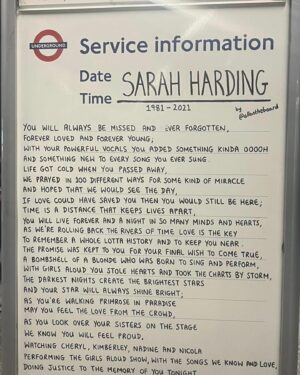 UNDERGROUND
Service information
Date
Time
SARAH HARDING
1981-2021
by @allontheboard
YOU WILL ALWAYS BE MISSED AND EVER FORGOTTEN,
FOREVER LOVED AND FOREVER YOUNG;
WITH YOUR POWERFUL VOCALS YOU ADDED SOMETHING KINDA OOOOH
AND SOMETHING NEW TO EVERY SONG YOU EVER SUNG.
LIFE GOT COLD WHEN YOU PASSED AWAY,
WE PRAYED IN 100 DIFFERENT WAYS FOR SOME KIND OF MIRACLE
AND HOPED THAT WE WOULD SEE THE DAY,
IF LOVE COULD HAVE SAVED YOU THEN YOU WOULD STILL BE HERE;
TIME IS A DISTANCE THAT KEEPS LIVES APART,
YOU WILL LIVE FOREVER AND A NIGHT IN SO MANY MINDS AND HEARTS,
AS WE'RE ROLLING BACK THE RIVERS OF TIME LOVE IS THE KEY
TO REMEMBER A WHOLE LOTTA HISTORY AND TO KEEP YOU NEAR.
THE PROMISE WAS KEPT TO YOU FOR YOUR FINAL WISH TO COME TRUE,
A BOMBSHELL OF A BLONDE WHO WAS BORN TO SING AND PERFORM,
WITH GIRLS ALOUD YOU STOLE HEARTS AND TOOK THE CHARTS BY STORM,
THE DARKEST NIGHTS CREATE THE BRIGHTEST STARS
AND YOUR STAR WILL ALWAYS SHINE BRIGHT;
AS YOU'RE WALKING PRIMROSE IN PARADISE
MAY YOU FEEL THE LOVE FROM THE CROWD,
AS YOU LOOK OVER YOUR SISTERS ON THE STAGE
WE KNOW YOU WILL FEEL PROUD.
WATCHING CHERYL, KIMBERLEY, NADINE AND NICOLA
PERFORMING THE GIRLS ALOUD SHOW, WITH THE SONGS WE KNOW AND LOVE,
DOING JUSTICE TO THE MEMORY OF YOU TONIGHT